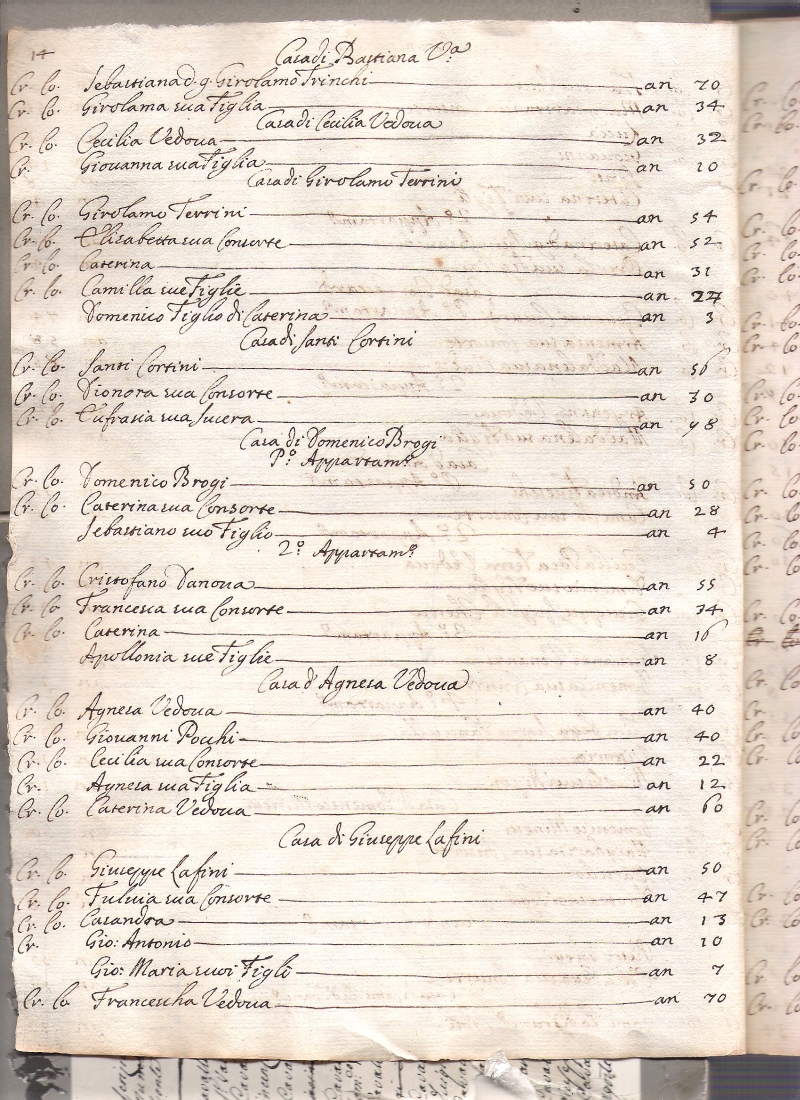 14
Casa di Bastiana Va.
Cr. Co. Sebastiana d. g. Girolamo Trinchi an 70
Cr. Co. Girolama sua Figlia an 34
Casa di Cecilia Vedova
Cr. Co. Cecilia Vedova an 32
Cr. Giovanna sua Figlia an 10
Casa di Girolamo Terrini
Cr. Co. Girolamo Terrini an 54
Cr. Co. Elisabetta sua Consorte an 52
Cr. Co. Caterina an 31
Cr. Co. Camilla sue Figlie an 27
Domenico Figlio di Caterina an 3
Casa di Santi Cortini
Cr. Co. Santi Cortini an 56
Cr. Co. Dionora sua Consorte an 30
Cr. Co. Eufrasia sua Sucera an 98
Casa di Domenico Brogi
Po. Appartamo.
Cr. Co. Domenico Brogi an 50
Cr. Co. Caterina sua Consorte an 28
Sebastiano suo Figlio an 4
2o. Appartamo.
Cr. Co. Cristofano Danova an 55
Cr. Co Francesca sua Consorte an 34
Cr. Co. Caterina an 16
Apollonia sue Figlie an 8
Casa d'Agnesa Vedova
Cr. Co. Agnesa Vedova an 40
Cr. Co. Giovanni Pochi an 40
Cr. Co. Cecilia sua Consorte an 22
Cr. Agnesa sua Figlia an 12
Cr. Co. Caterina Vedova an 60
Casa di Giuseppe Lafini
Cr. Co. Giuseppe Lafini an 50
Cr. Co. Fulvia sua Consorte an 47
Cr. Co. Casandra an 13
Cr. Gio: Antonio an 10
Gio: Maria suoi Figli an 7
Cr. Co Francescha Vedova an 70